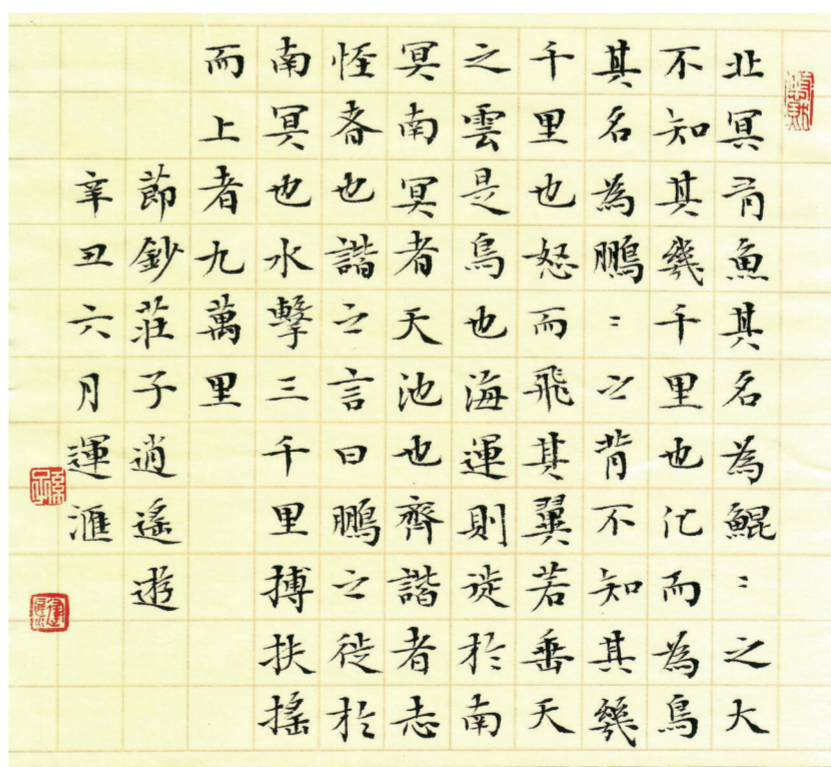 北冥有魚其名為鯤〻之大
不知其幾千里也化而為鳥
其名為鵬〻之背不知其幾
千里也怒而飛其翼若垂天
之雲是鳥也海運則徙於南
冥南冥者天池也齊諧者志
怪者也諧之言曰鵬之徙於
南冥也水擊三千里摶扶搖
而上者九萬里
節鈔莊子逍遙遊
辛丑六月運滙